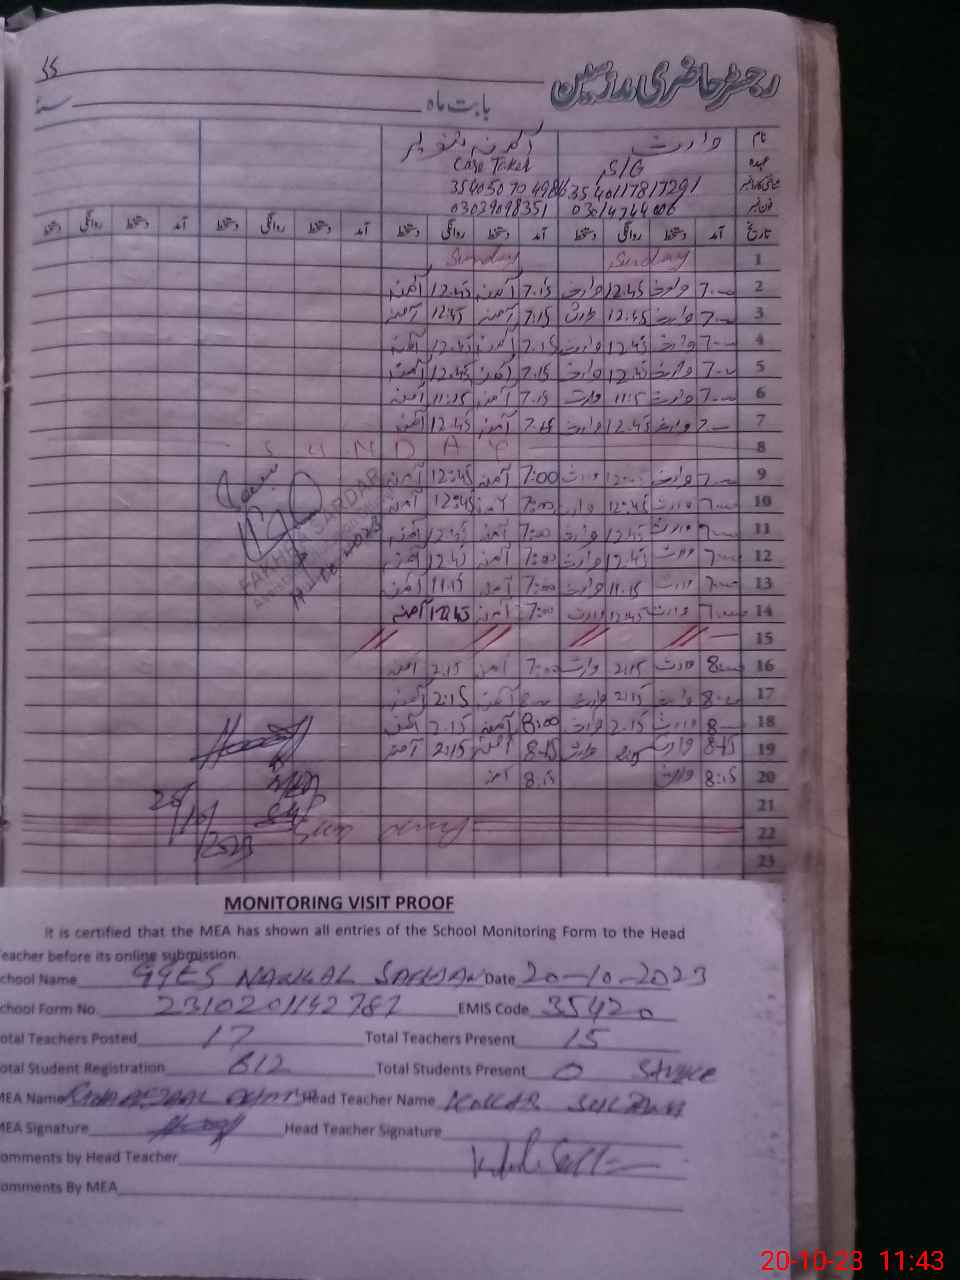 رجسٹر حاضری ملازمین
بابت ماہ سنہ
نام وارث آمنہ
عہدہ S/G Care Taker
3540117817291 3540507049886
03014744006 03039098351
تاریخ آمد دستخط روانگی دستخط آمد دستخط روانگی دستخط آمد دستخط روانگی دستخط آمد دستخط روانگی دستخط
1 Sunday Sunday
2 7.00 وارث 12.45 وارث 7.15 آمنہ 12.45 آمنہ
3 7.00 وارث 12.45 وارث 7.15 آمنہ 12.45 آمنہ
4 7.00 وارث 12.45 وارث 7.15 آمنہ 12.45 آمنہ
5 7.00 وارث 12.45 وارث 7.15 آمنہ 12.45 آمنہ
6 7.00 وارث 11.15 وارث 7.15 آمنہ 11.15 آمنہ
7 7.00 وارث 12.45 وارث 7.15 آمنہ 12.45 آمنہ
8 SUNDAY
9 7.00 وارث 12.45 وارث 7:00 آمنہ 12:45 آمنہ
10 7.00 وارث 12.45 وارث 7:00 آمنہ 12:45 آمنہ
11 7.00 وارث 12.45 وارث 7:00 آمنہ 12.45 آمنہ
12 7.00 وارث 12.45 وارث 7:00 آمنہ 12.45 آمنہ
13 7.00 وارث 11.15 وارث 7:00 آمنہ 11.15 آمنہ
14 7.00 وارث 12.45 وارث 7:00 آمنہ 12.45 آمنہ
15
16 8.00 وارث 2.15 وارث 7:00 آمنہ 2.15 آمنہ
17 8.00 وارث 2.15 وارث 8.00 آمنہ 2:15 آمنہ
18 8.00 وارث 2.15 وارث 8:00 آمنہ 2.15 آمنہ
19 8.15 وارث 2.15 وارث 8.15 آمنہ 2.15 آمنہ
20 8:15 وارث 8.15 آمنہ
21
22 Sunday
23
FAKHRA SARDAR
MEA
20/10/2023
MONITORING VISIT PROOF
It is certified that the MEA has shown all entries of the School Monitoring Form to the Head
eacher before its online submission.
chool Name GGES NANGAL SAHDAN Date 20-10-2023
chool Form No. 2310201142787 EMIS Code 35420
otal Teachers Posted 17 Total Teachers Present 15
otal Student Registration 612 Total Students Present 0 Strike
MEA Name Head Teacher Name SULTANA
MEA Signature Head Teacher Signature
omments by Head Teacher
omments By MEA
20-10-23 11:43